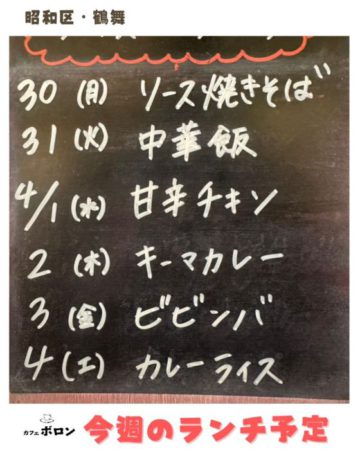 昭和区・鶴舞
30(月) ソース焼きそば
31(火) 中華飯
4/1(水) 甘辛チキン
2(木) キーマカレー
3(金) ビビンバ
4(土) カレーライス
カフェ ボロン 今週のランチ予定